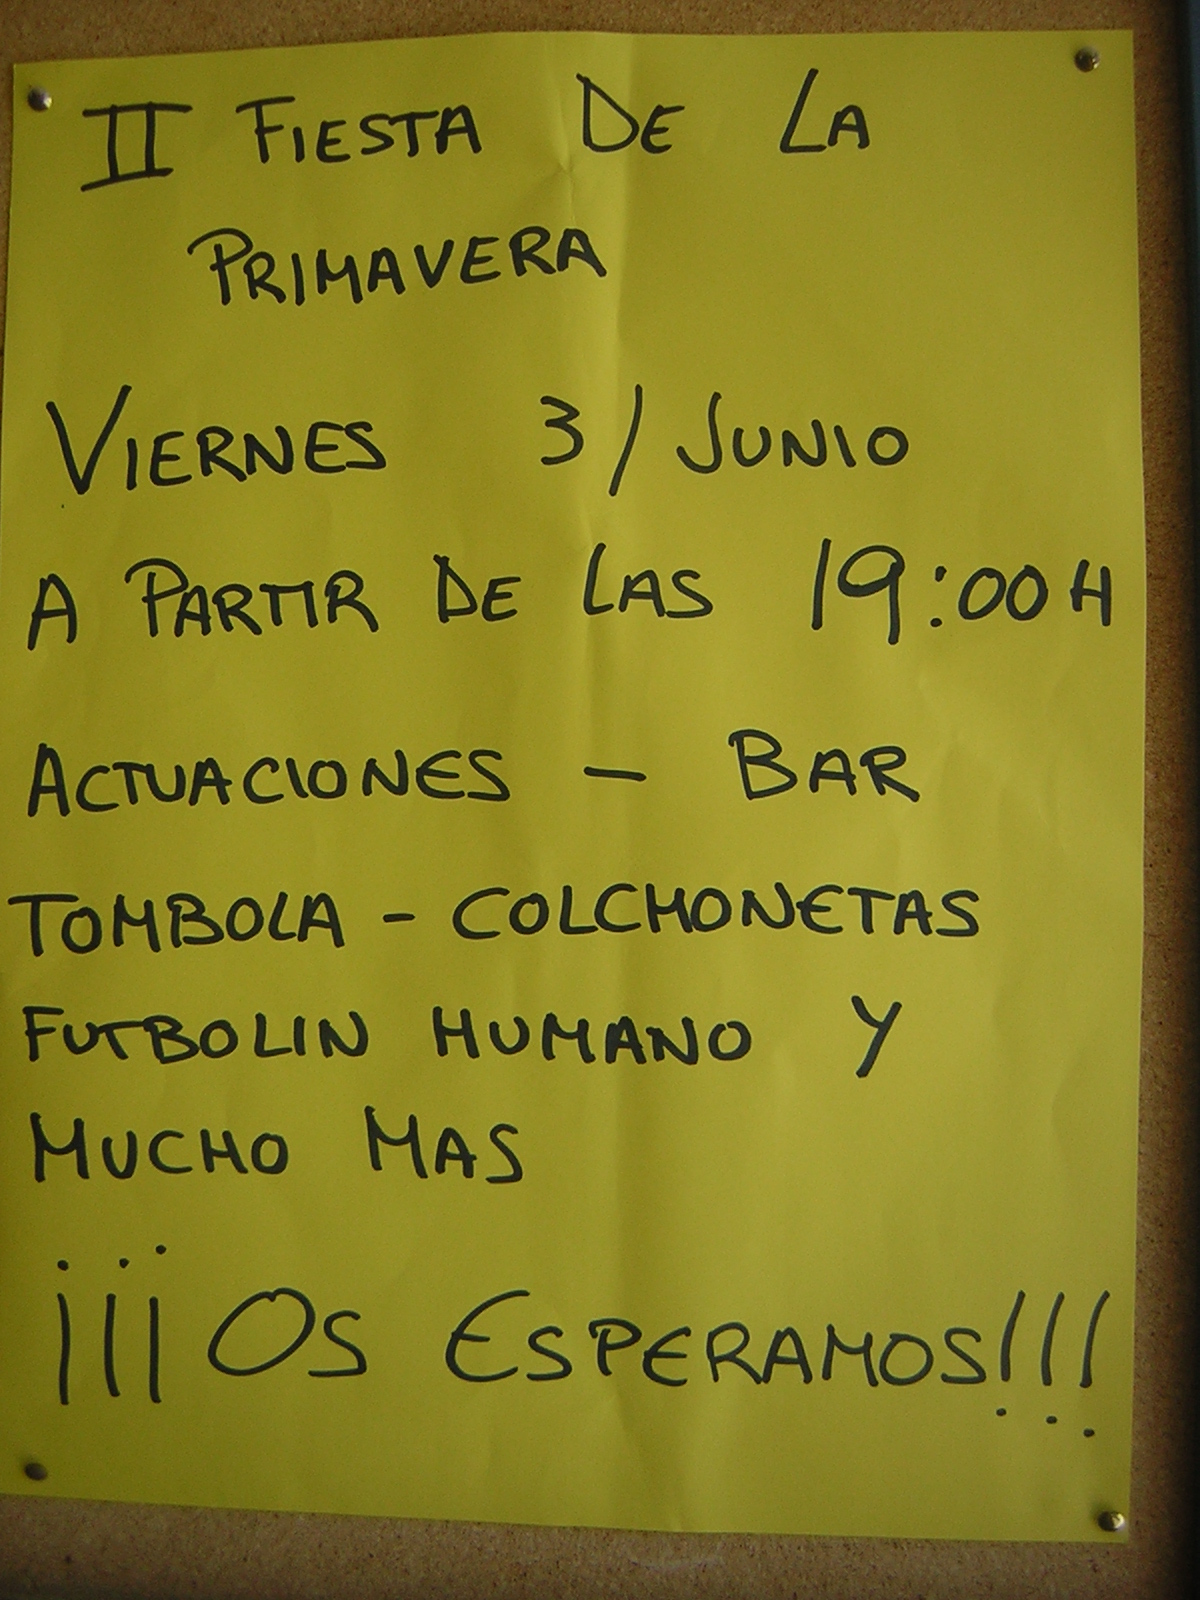 II FIESTA DE LA
PRIMAVERA
VIERNES 3/JUNIO
A PARTIR DE LAS 19:00H
ACTUACIONES - BAR
TOMBOLA - COLCHONETAS
FUTBOLIN HUMANO Y
MUCHO MAS
¡¡¡OS ESPERAMOS!!!